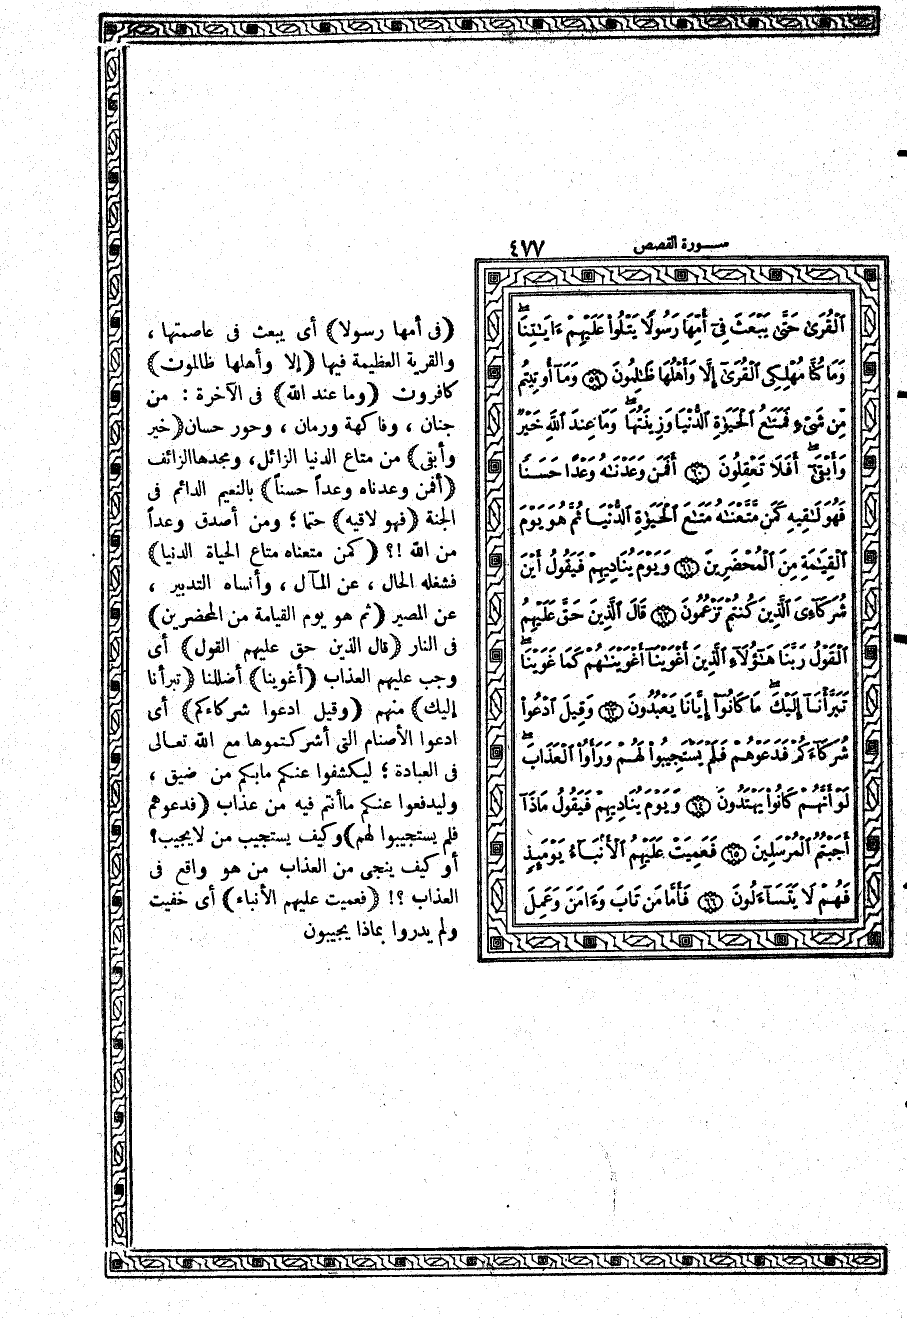 سورة القصص
٤٧٧
ٱلۡقُرَىٰ حَتَّىٰ يَبۡعَثَ فِيٓ أُمِّهَا رَسُولٗا يَتۡلُواْ عَلَيۡهِمۡ ءَايَٰتِنَاۚ
وَمَا كُنَّا مُهۡلِكِي ٱلۡقُرَىٰٓ إِلَّا وَأَهۡلُهَا ظَٰلِمُونَ ٥٩ وَمَآ أُوتِيتُم
مِّن شَيۡءٖ فَمَتَٰعُ ٱلۡحَيَوٰةِ ٱلدُّنۡيَا وَزِينَتُهَاۚ وَمَا عِندَ ٱللَّهِ خَيۡرٞ
وَأَبۡقَىٰٓۚ أَفَلَا تَعۡقِلُونَ ٦٠ أَفَمَن وَعَدۡنَٰهُ وَعۡدًا حَسَنٗا
فَهُوَ لَٰقِيهِ كَمَن مَّتَّعۡنَٰهُ مَتَٰعَ ٱلۡحَيَوٰةِ ٱلدُّنۡيَا ثُمَّ هُوَ يَوۡمَ
ٱلۡقِيَٰمَةِ مِنَ ٱلۡمُحۡضَرِينَ ٦١ وَيَوۡمَ يُنَادِيهِمۡ فَيَقُولُ أَيۡنَ
شُرَكَآءِيَ ٱلَّذِينَ كُنتُمۡ تَزۡعُمُونَ ٦٢ قَالَ ٱلَّذِينَ حَقَّ عَلَيۡهِمُ
ٱلۡقَوۡلُ رَبَّنَا هَٰٓؤُلَآءِ ٱلَّذِينَ أَغۡوَيۡنَآ أَغۡوَيۡنَٰهُمۡ كَمَا غَوَيۡنَاۖ
تَبَرَّأۡنَآ إِلَيۡكَۖ مَا كَانُوٓاْ إِيَّانَا يَعۡبُدُونَ ٦٣ وَقِيلَ ٱدۡعُواْ
شُرَكَآءَكُمۡ فَدَعَوۡهُمۡ فَلَمۡ يَسۡتَجِيبُواْ لَهُمۡ وَرَأَوُاْ ٱلۡعَذَابَۚ
لَوۡ أَنَّهُمۡ كَانُواْ يَهۡتَدُونَ ٦٤ وَيَوۡمَ يُنَادِيهِمۡ فَيَقُولُ مَاذَآ
أَجَبۡتُمُ ٱلۡمُرۡسَلِينَ ٦٥ فَعَمِيَتۡ عَلَيۡهِمُ ٱلۡأَنۢبَآءُ يَوۡمَئِذٖ
فَهُمۡ لَا يَتَسَآءَلُونَ ٦٦ فَأَمَّا مَن تَابَ وَءَامَنَ وَعَمِلَ
(فى أمها رسولا) أى يبعث فى عاصمتها ،
والقرية العظيمة فيها (إلا وأهلها ظالمون)
كافرون (وما عند الله) فى الآخرة : من
جنان ، وفاكهة ورمان ، وحور حسان (خير
وأبقى) من متاع الدنيا الزائل، ومجدها الزائف
(أفمن وعدناه وعداً حسناً) بالنعيم الدائم فى
الجنة (فهو لاقيه) حتما؛ ومن أصدق وعداً
من الله !؟ (كمن متعناه متاع الحياة الدنيا)
فشغله الحال ، عن المآل ، وأنساه التدبير ،
عن المصير (ثم هو يوم القيامة من المحضرين)
فى النار (قال الذين حق عليهم القول) أى
وجب عليهم العذاب (أغوينا) أضللنا (تبرأنا
إليك) منهم (وقيل ادعوا شركاءكم) أى
ادعوا الأصنام التى أشركتموها مع الله تعالى
فى العبادة ؛ ليكشفوا عنكم مابكم من ضيق ،
وليدفعوا عنكم ماأنتم فيه من عذاب (فدعوهم
فلم يستجيبوا لهم) وكيف يستجيب من لايجيب؟
أو كيف ينجى من العذاب من هو واقع فى
العذاب ؟! (فعميت عليهم الأنباء) أى خفيت
ولم يدروا بماذا يجيبون